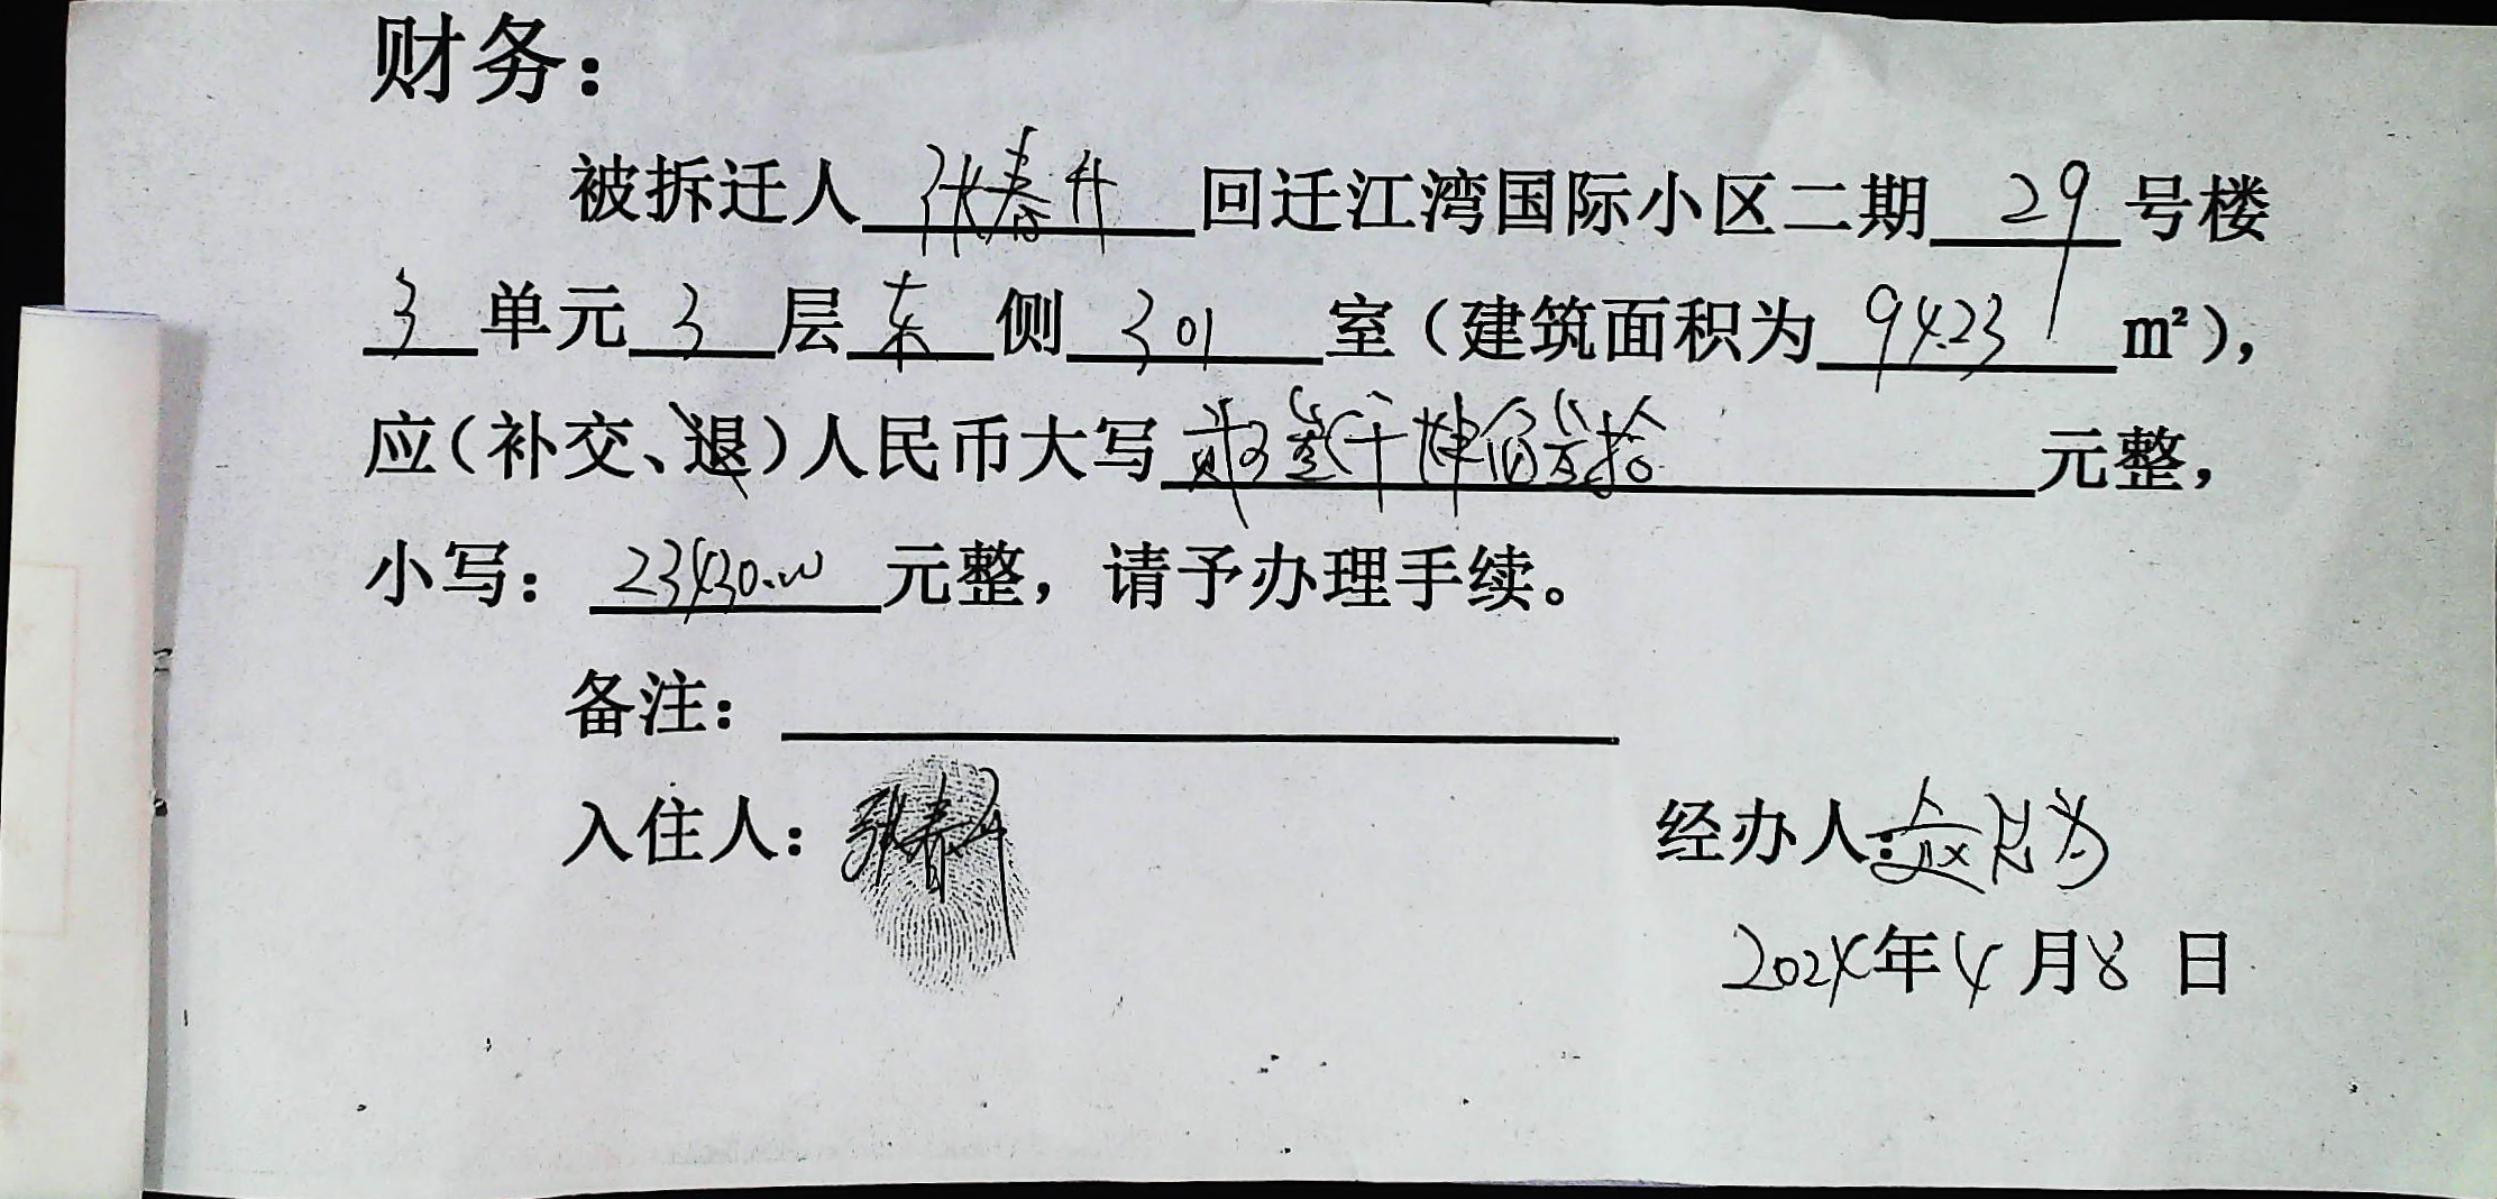 财务：
被拆迁人张春升回迁江湾国际小区二期 29 号楼
3 单元 3 层东侧 301 室（建筑面积为 94.23 m²），
应（补交、退）人民币大写贰万叁仟肆佰叁拾元整，
小写：23430.00 元整，请予办理手续。
备注：
入住人：张春升
经办人：赵
2024年4月8日